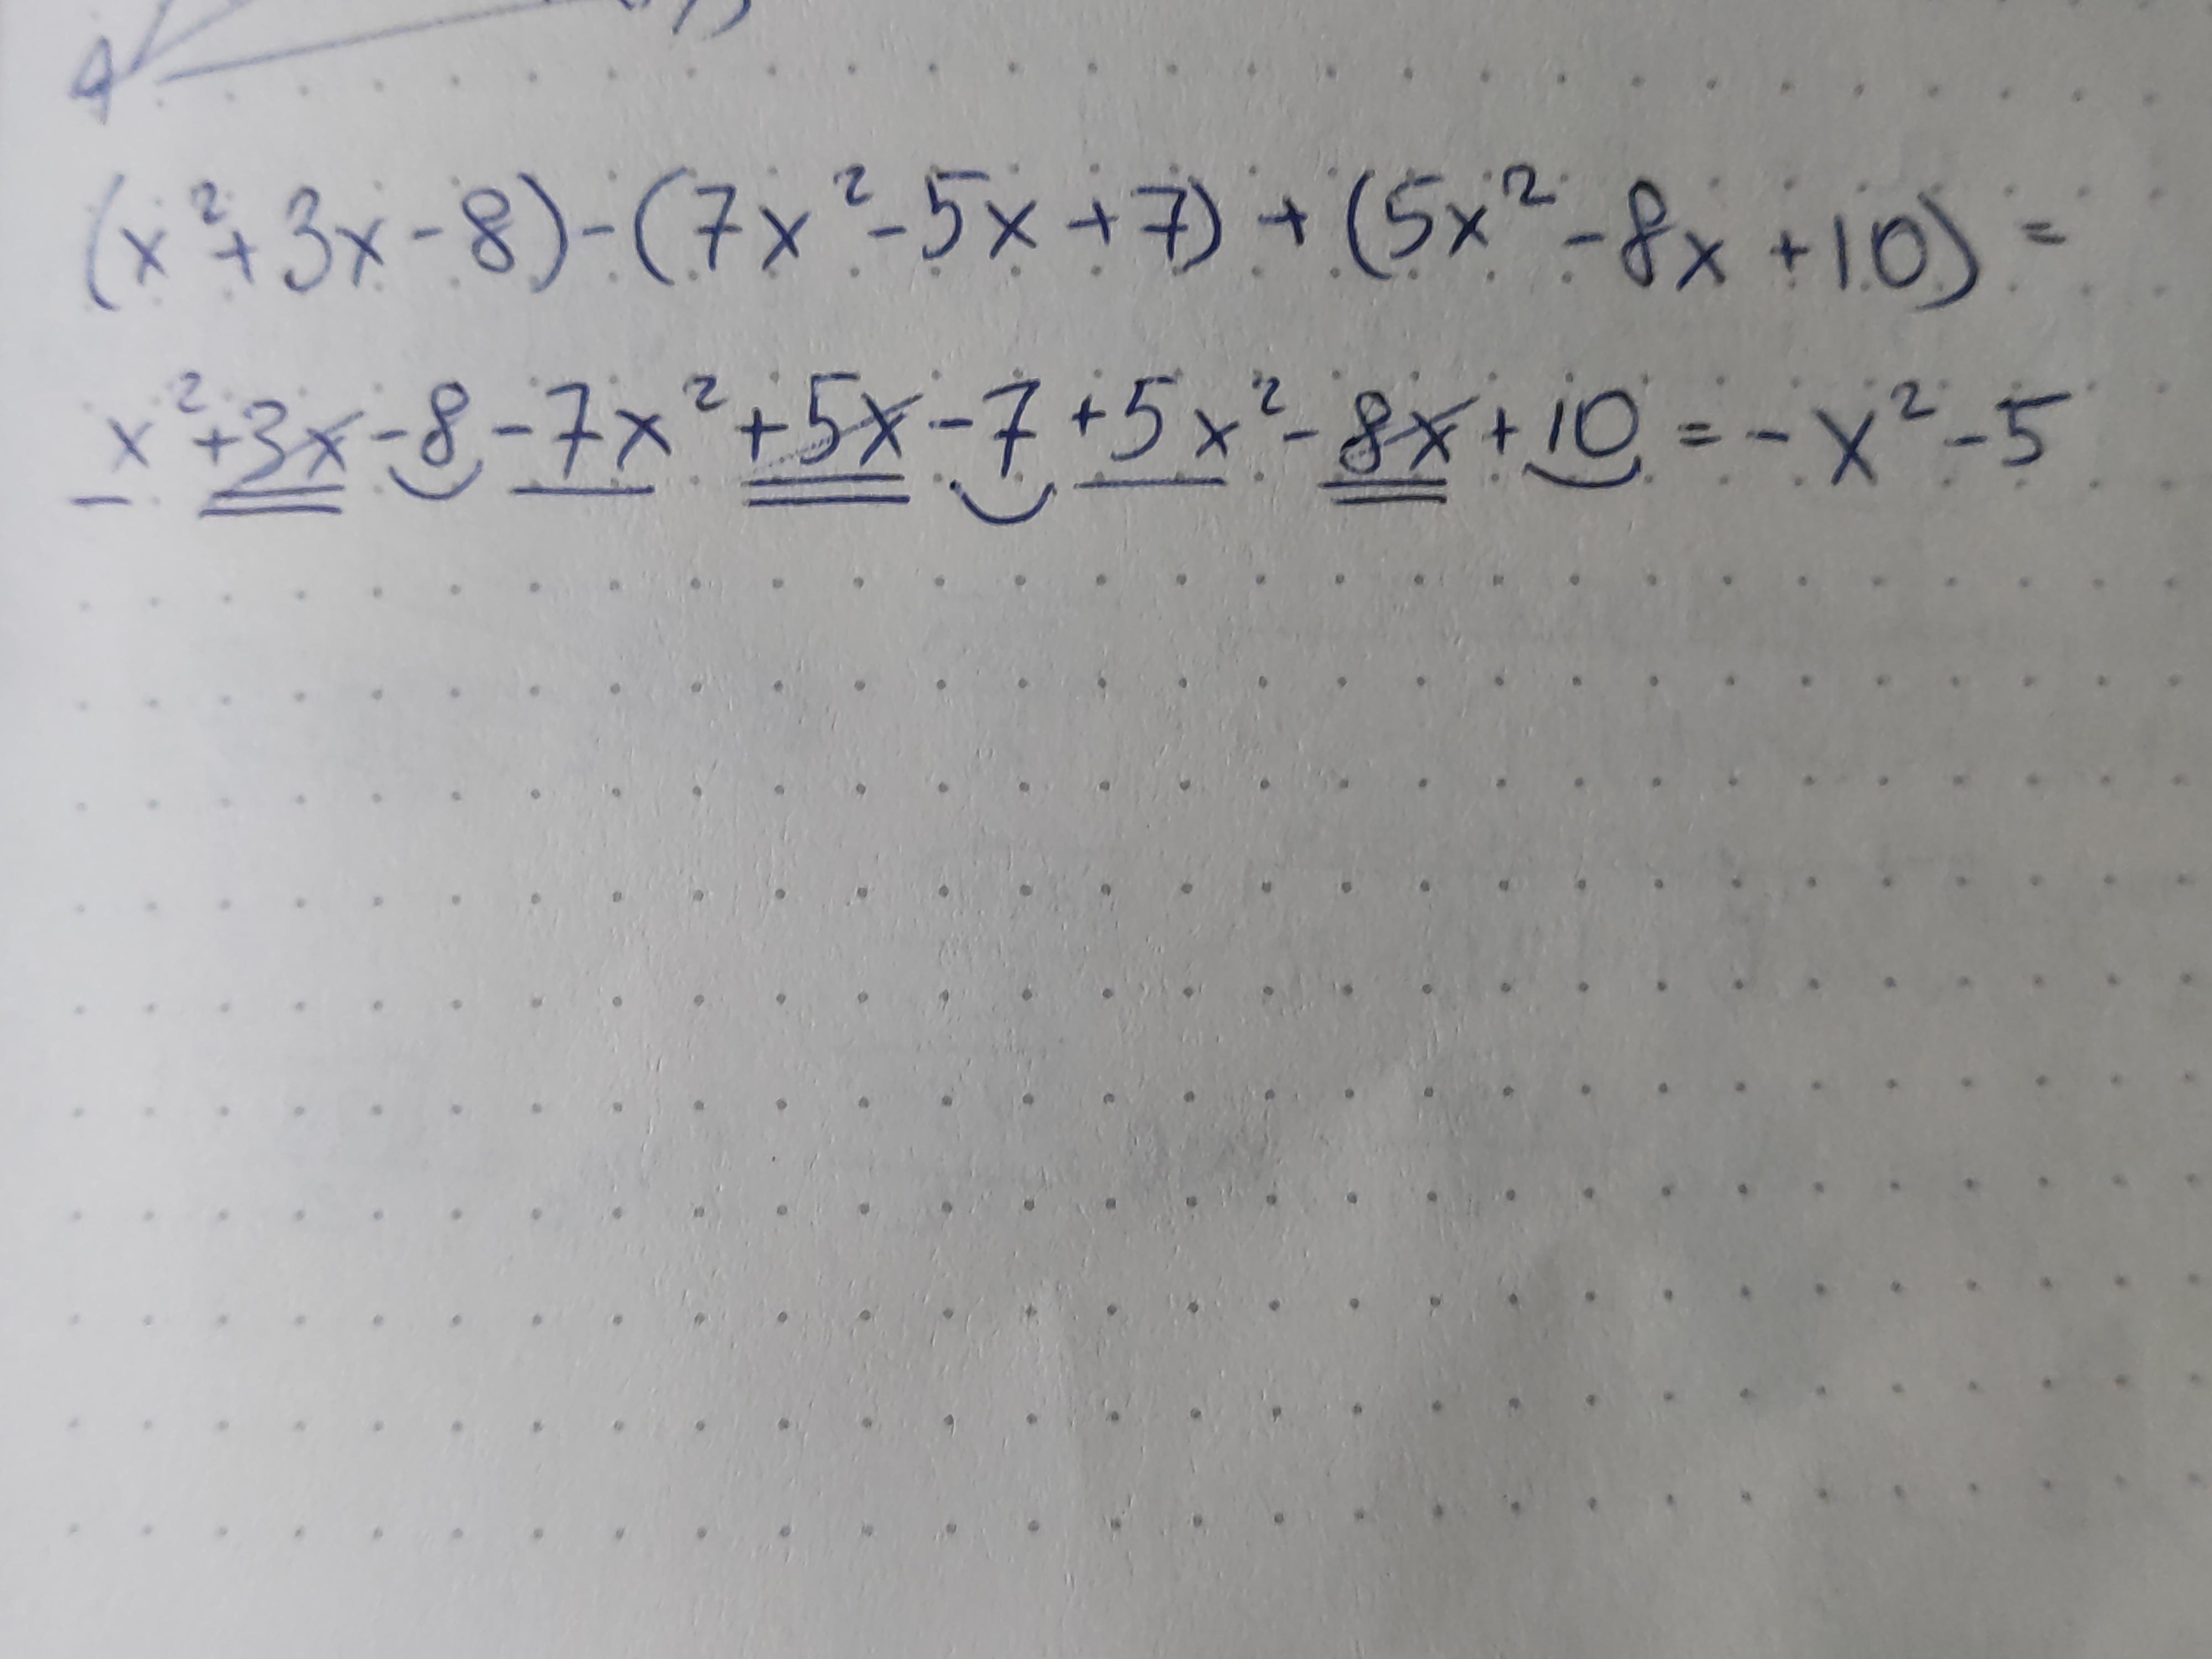 (x²+3x-8)-(7x²-5x+7)+(5x²-8x+10)=
x²+3x-8-7x²+5x-7+5x²-8x+10=-x²-5